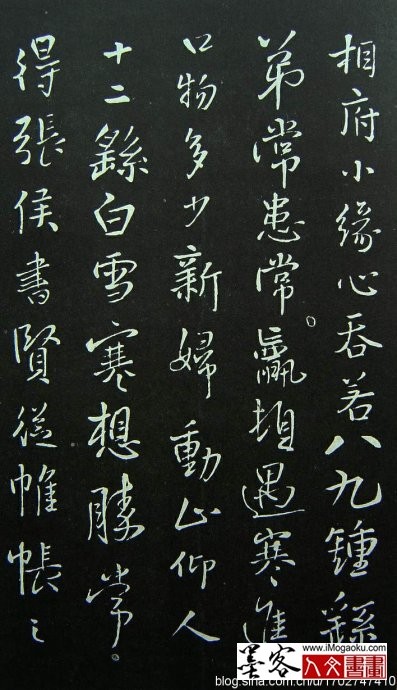 相府小緣心吞若八九鍾繇
弟常患常。羸頓遇寒進
口物多少新婦動止仰人
十二繇白雪寒想勝常。
得張侯書賢從帷帳之
www.iMogaoku.com
墨客 人文書畫
blog.sina.com.cn/u/1702747410